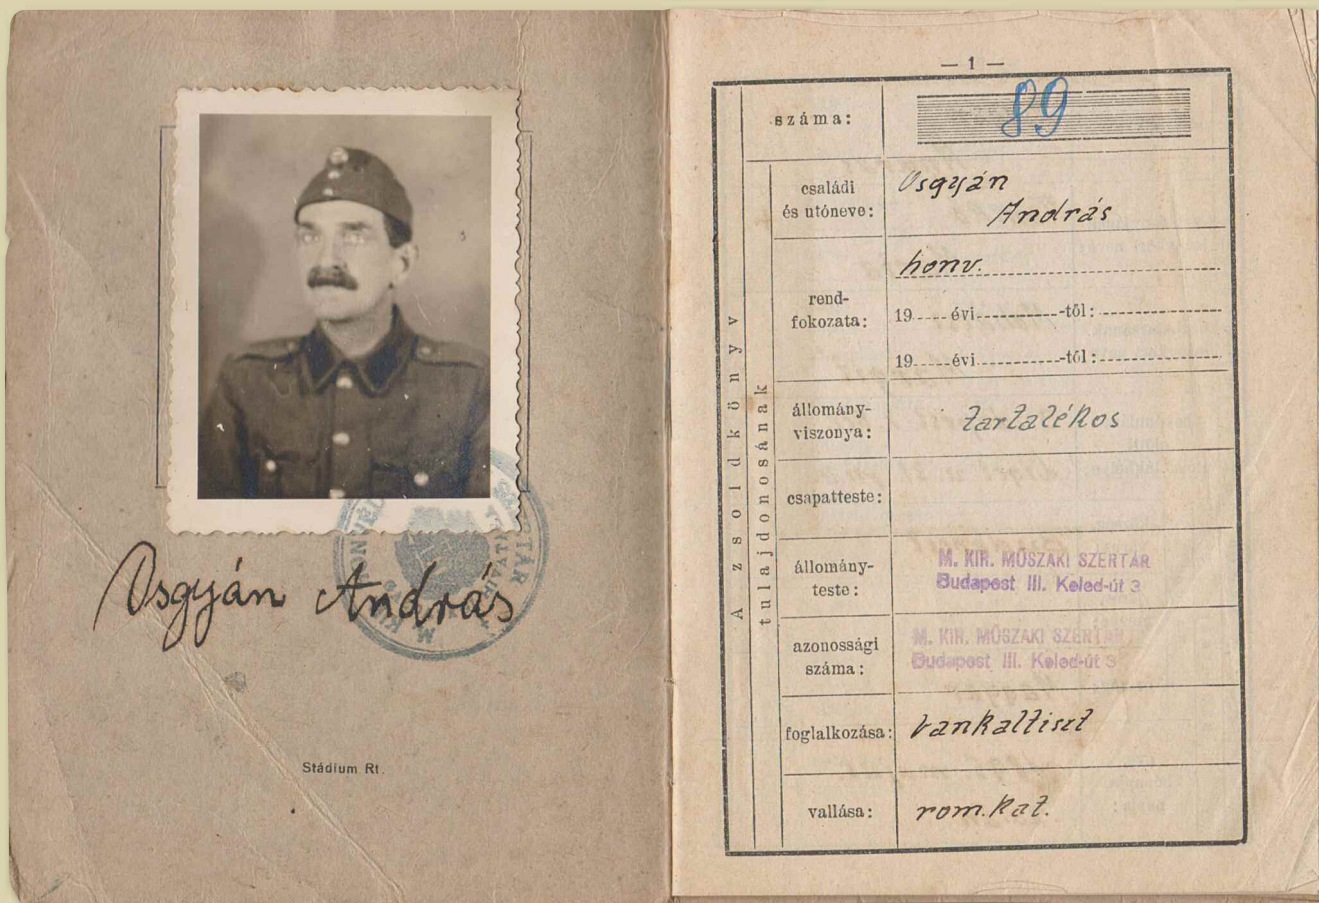 Osgyán András
Stádium Rt.
— 1 —
A zsoldkönyv
tulajdonosának
száma:
89
családi
és utóneve:
Osgyán
András
rend-
fokozata:
honv.
19 évi -től:
19 évi -től:
állomány-
viszonya:
tartalékos
csapatteste:
állomány-
teste:
M. KIR. MŰSZAKI SZERTÁR
Budapest III. Keled-út 3
azonossági
száma:
M. KIR. MŰSZAKI SZERTÁR
Budapest III. Keled-út 3
foglalkozása:
bankaltiszt
vallása:
rom. kat.